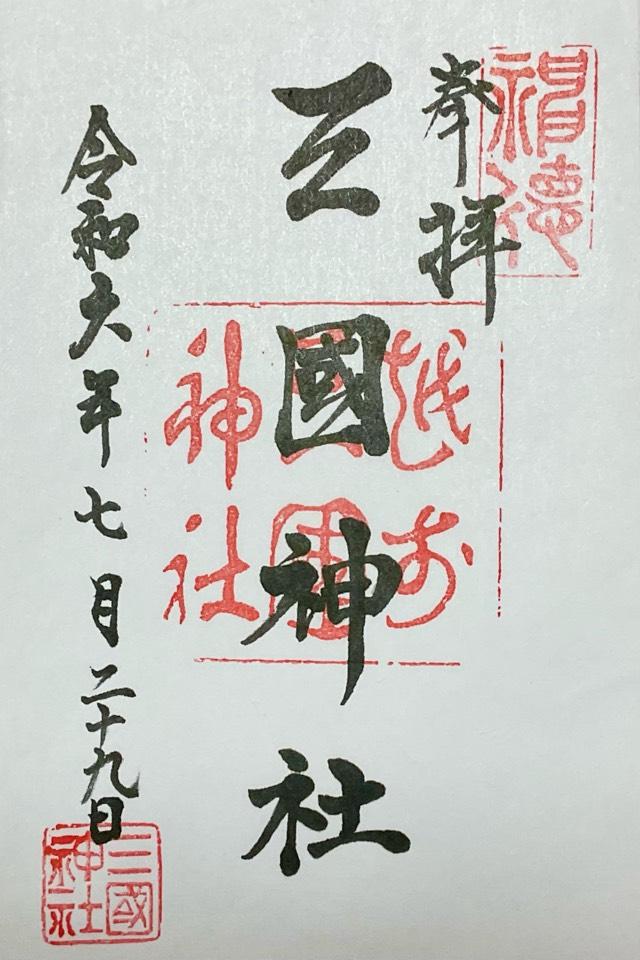 奉拝
三國神社
越前
三國
神社
令和六年七月二十九日
三國
神社